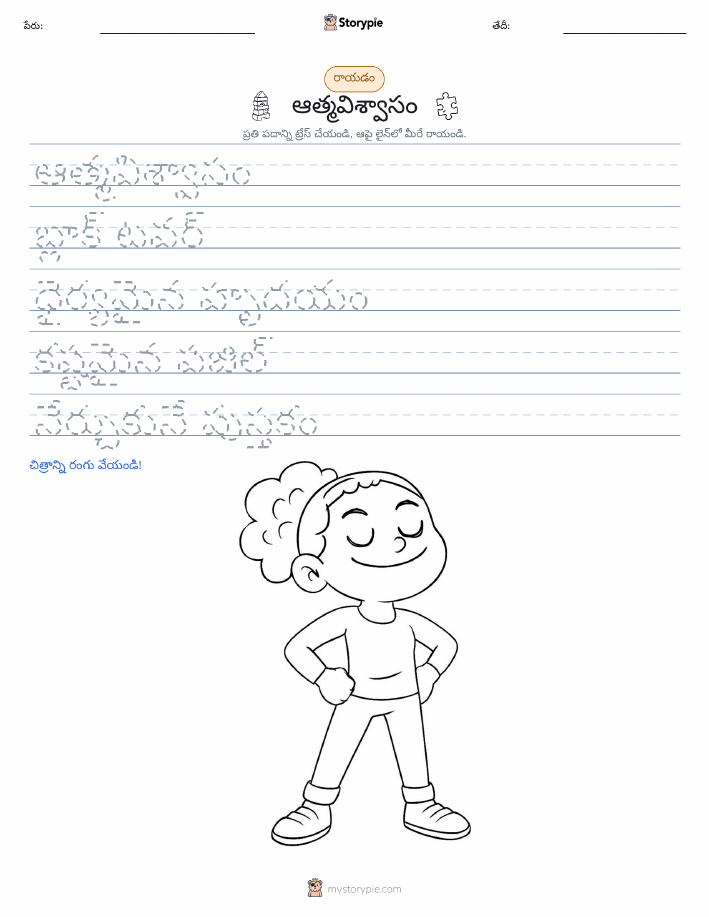 పేరు:
Storypie
తేదీ:
రాయడం
ఆత్మవిశ్వాసం
ప్రతి పదాన్ని ట్రేస్ చేయండి, ఆపై లైన్‌లో మీరే రాయండి.
ఆత్మవిశ్వాసం
బ్లాక్ టవర్
ధైర్యమైన హృదయం
కష్టమైన పజిల్
నేర్చుకునే పుస్తకం
చిత్రాన్ని రంగు వేయండి!
mystorypie.com